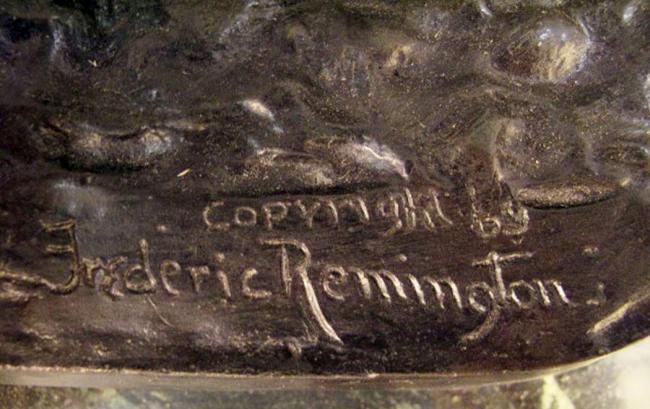 copyright by
Frederic Remington